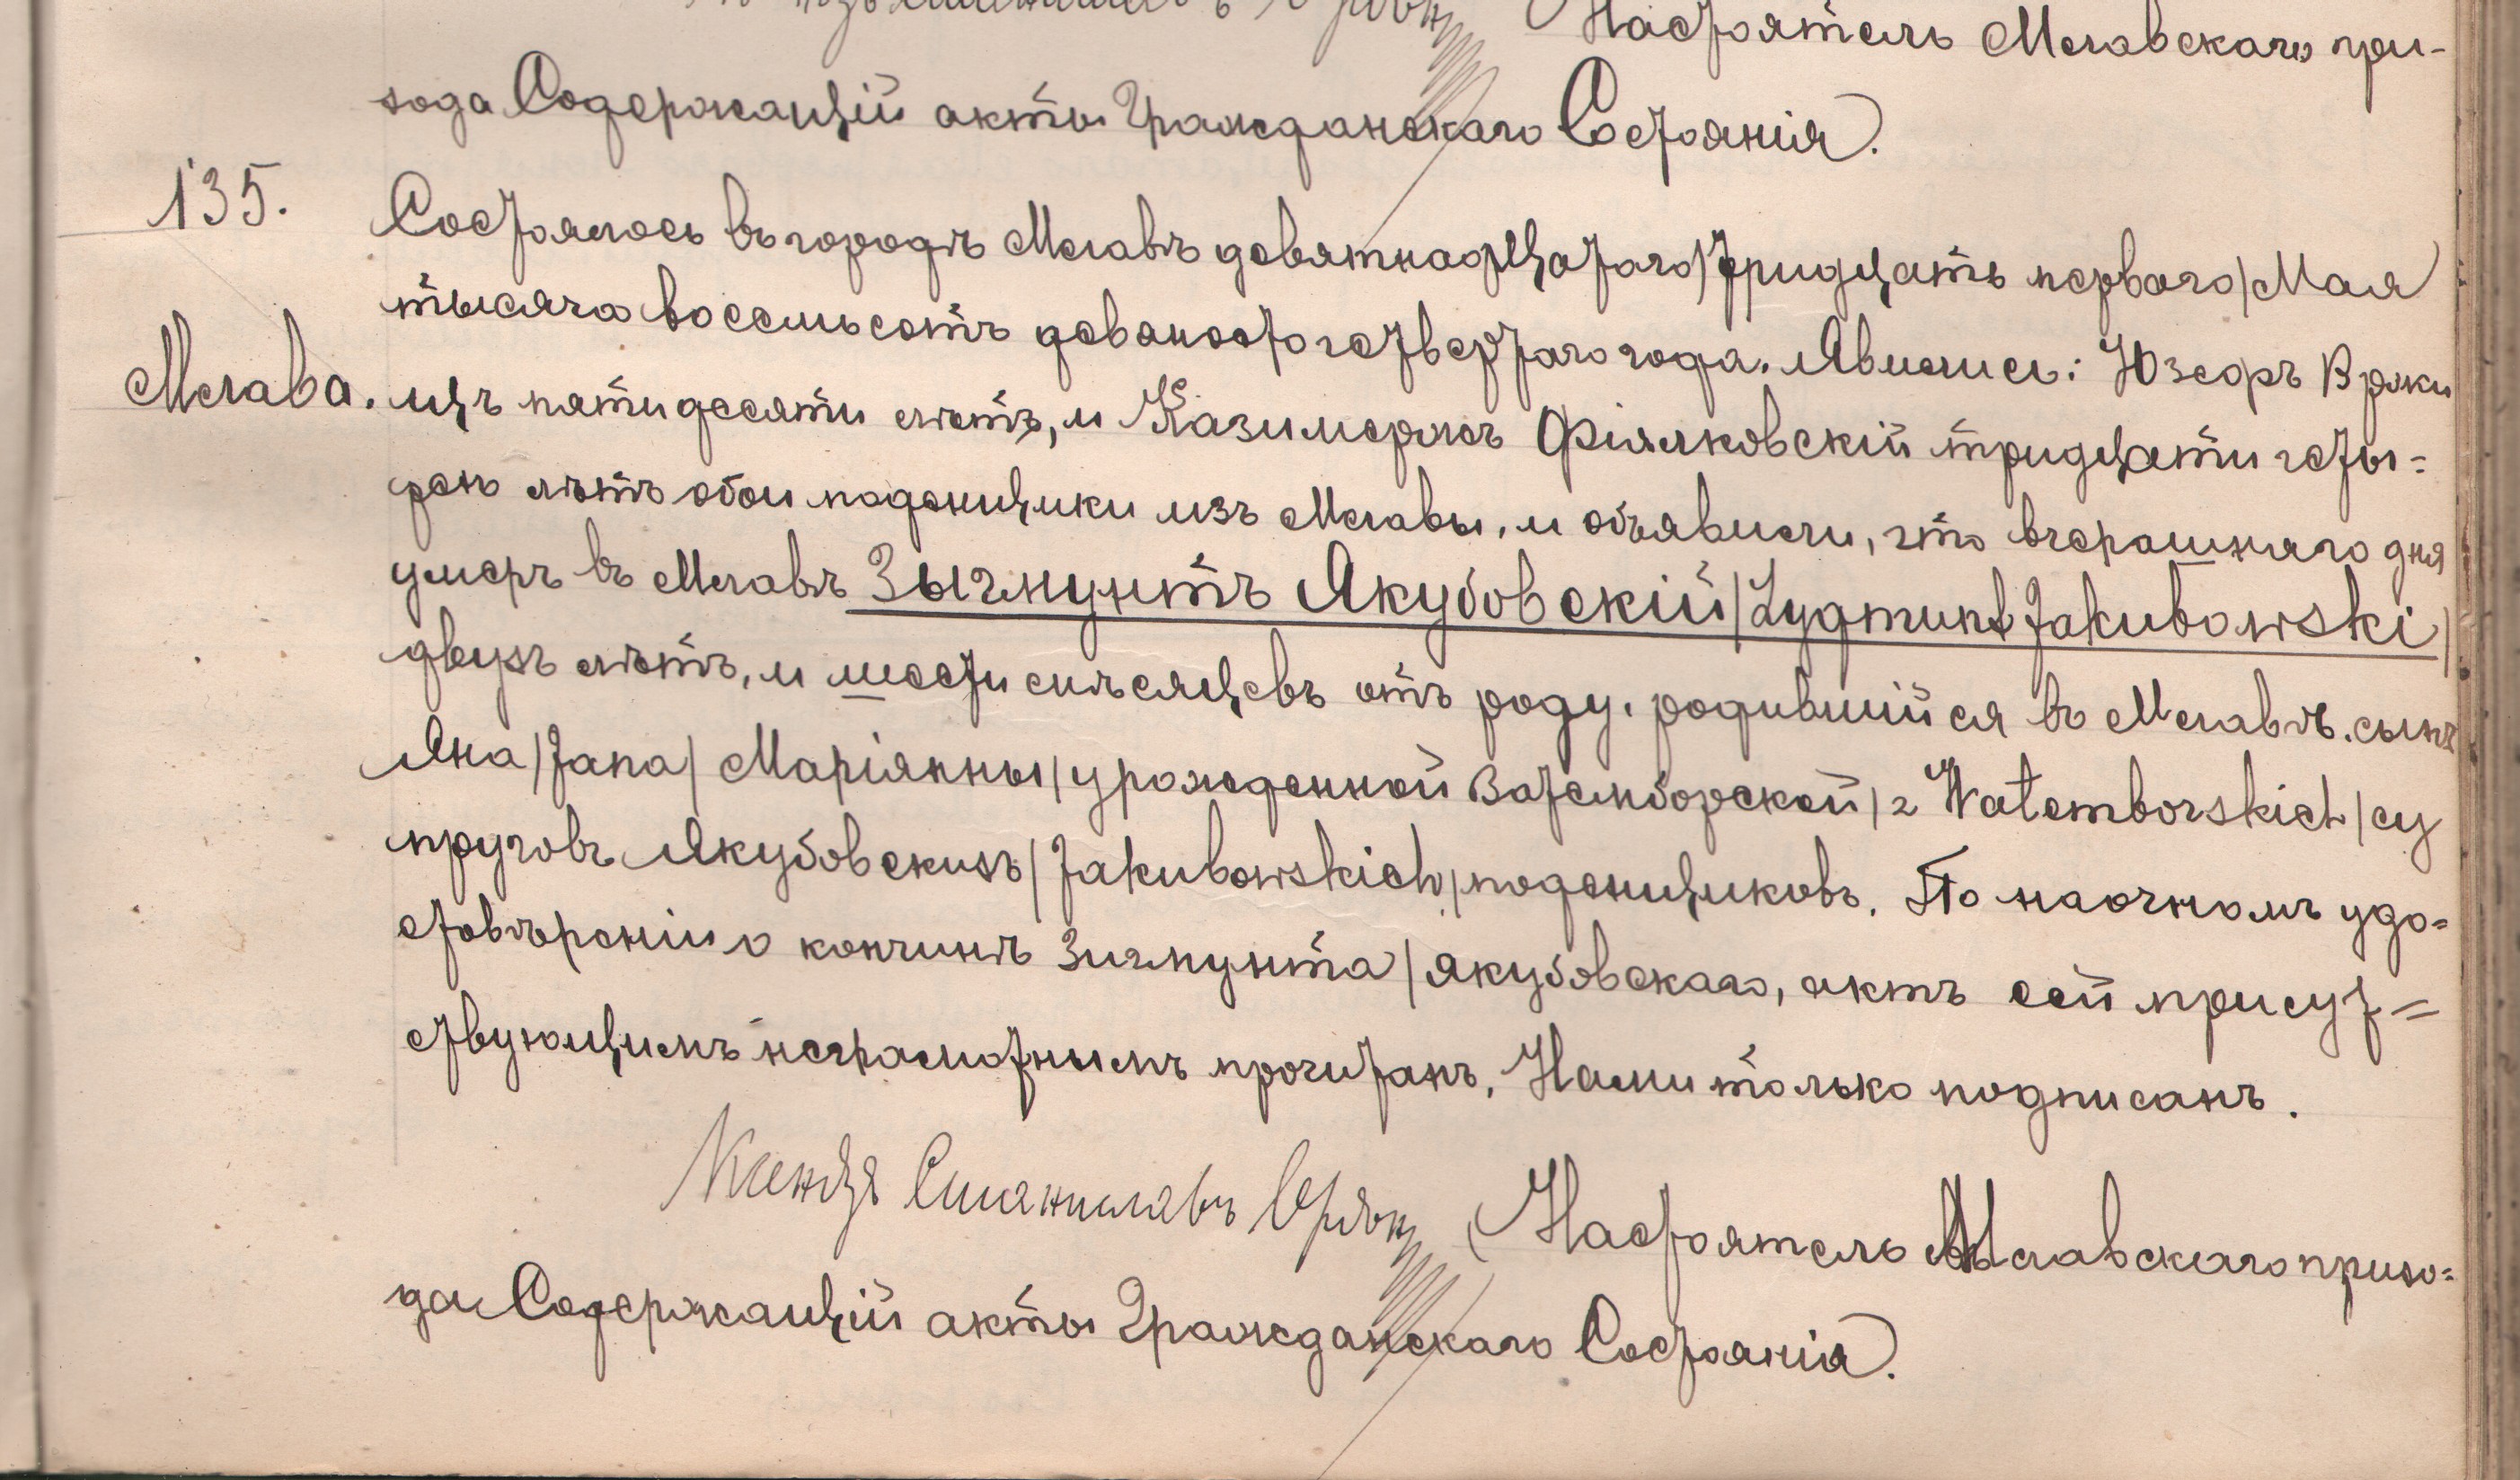 Настоятель Млавскаго при-
хода Содержащій акты Гражданскаго Состоянія.
135.
Состоялось въ городѣ Млавѣ девятнадцатаго/тридцать перваго/Мая
тысяча восемьсотъ девяностого четвертаго года. Явились: Юзефъ
Млава.
пятидесяти лѣтъ, и Казимержъ Фіялковскій тридцати четы=
рехъ лѣтъ обои поденщики изъ Млавы, и объявили, что вчерашняго дня
умеръ въ Млавѣ Зыгмунтъ Якубовскій/Zygmunt Jakubowski/
двухъ лѣтъ, и шести мѣсяцевъ отъ роду, родившійся въ Млавѣ. сынъ
Яна/Jana/ Маріянны/урожденной Ватемборской/z Watemborskich/су
пруговъ Якубовскихъ/Jakubowskich/поденщиковъ. По наочномъ удо=
стовѣреніи о кончинѣ Зигмунта/Якубовскаго, актъ сей присут=
ствующимъ неграмотнымъ прочитанъ, Нами только подписанъ.
Ксендзъ Станиславъ Настоятель Млавскаго прихо=
да Содержащій акты Гражданскаго Состоянія.